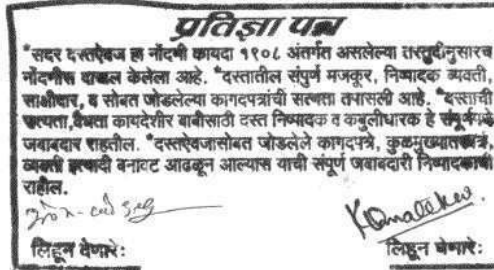 प्रतिज्ञा पत्र
"सदर दस्तऐवज हा नोंदणी कायदा १९०८ अंतर्गत असलेल्या तरतुदीनुसारच
नोंदणीस दाखल केलेला आहे. "दस्तातील संपुर्ण मजकूर, निष्पादक व्यक्ती,
साक्षीदार, व सोबत जोडलेल्या कागदपत्रांची सत्यता तपासली आहे. "दस्ताची
सत्यता,वैधता कायदेशीर बाबीसाठी दस्त निष्पादक व कबुलीधारक हे संपूर्णपणे
जबाबदार राहतील. "दस्तऐवजासोबत जोडलेले कागदपत्रे, कुळमुख्यातरपत्रे,
व्यक्ती इत्यादी बनावट आढळून आल्यास याची संपूर्ण जबाबदारी निष्पादकाची
राहील.
लिहून देणारे: लिहून घेणारे: